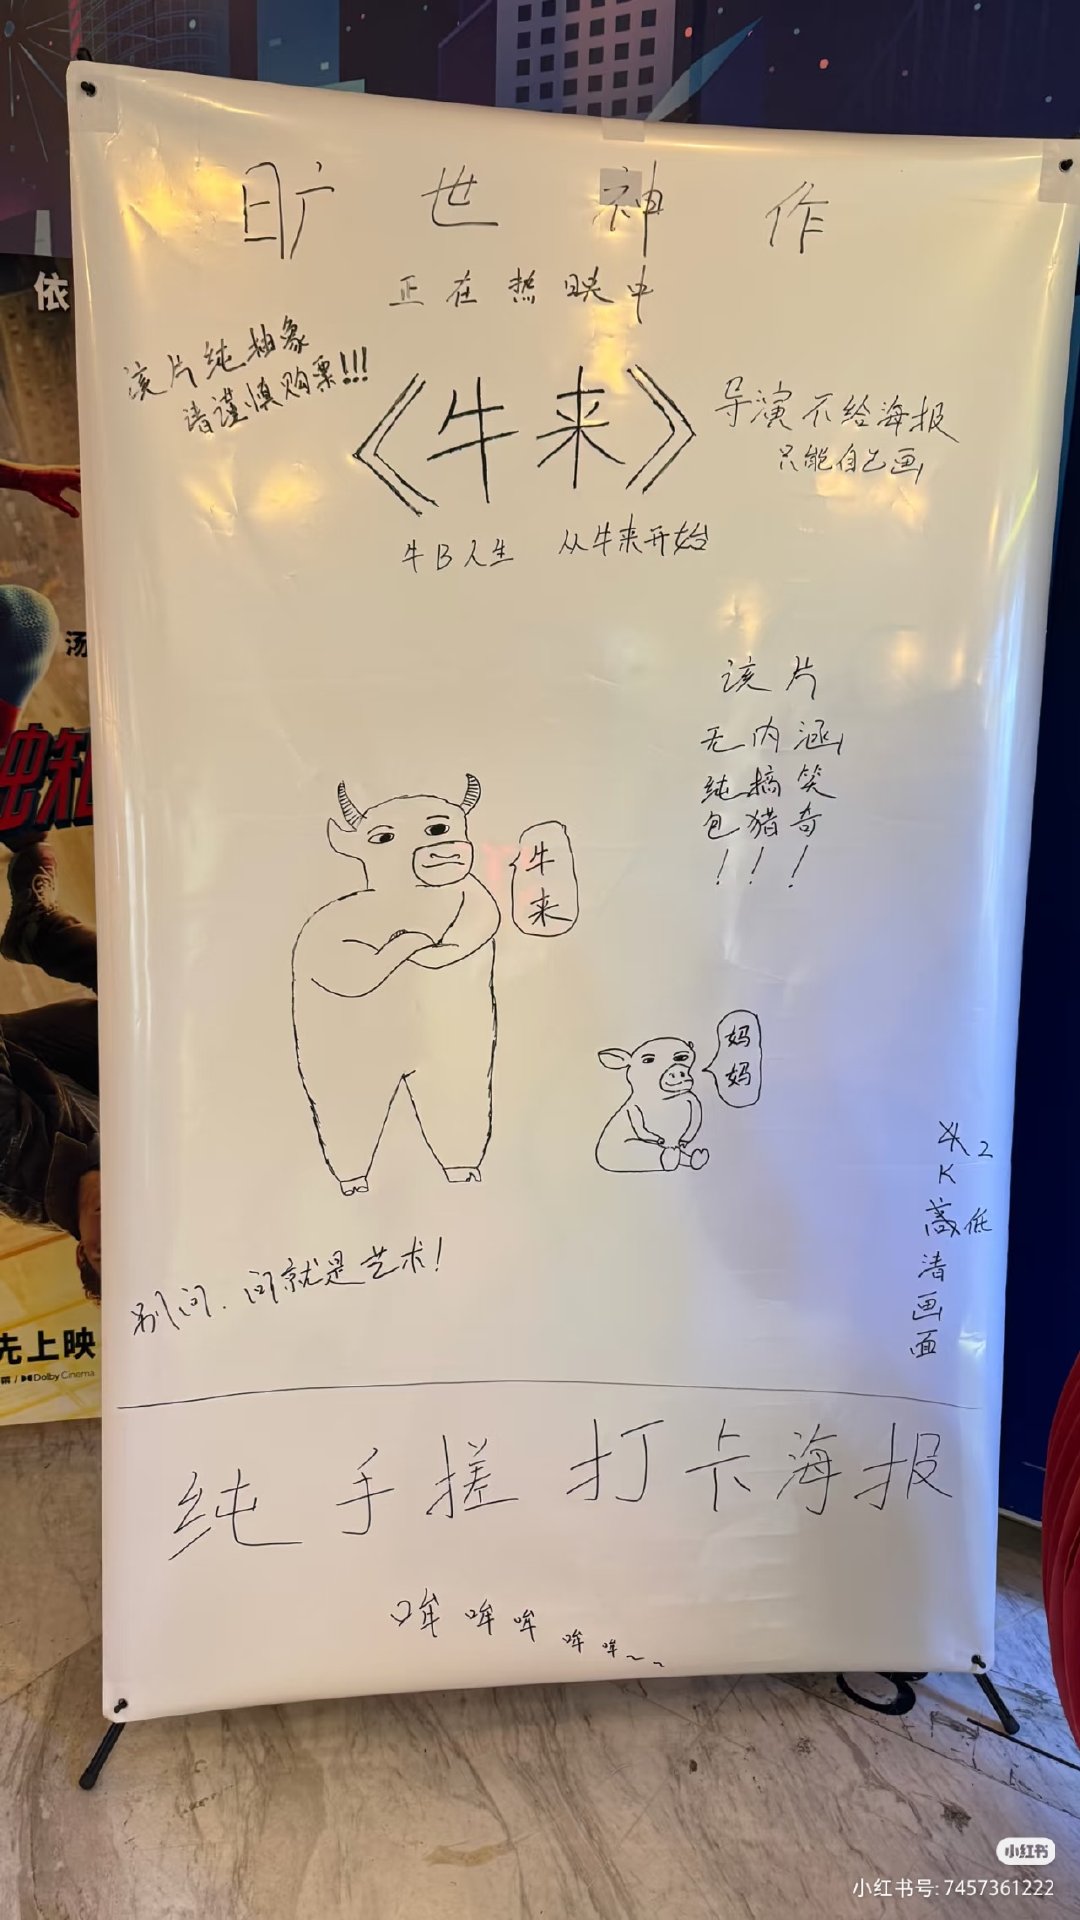 旷世神作
正在热映中
该片纯抽象
请谨慎购票!!!
《牛来》
导演不给海报
只能自己画
牛B人生 从牛来开始
该片
无内涵
纯搞笑
包猎奇
!!!
牛
来
妈
妈
2
K
低
清
画
面
别问.问就是艺术!
纯手搓打卡海报
哞哞哞哞哞~~
依
汤
先上映
Dolby Cinema
小红书
小红书号: 7457361222